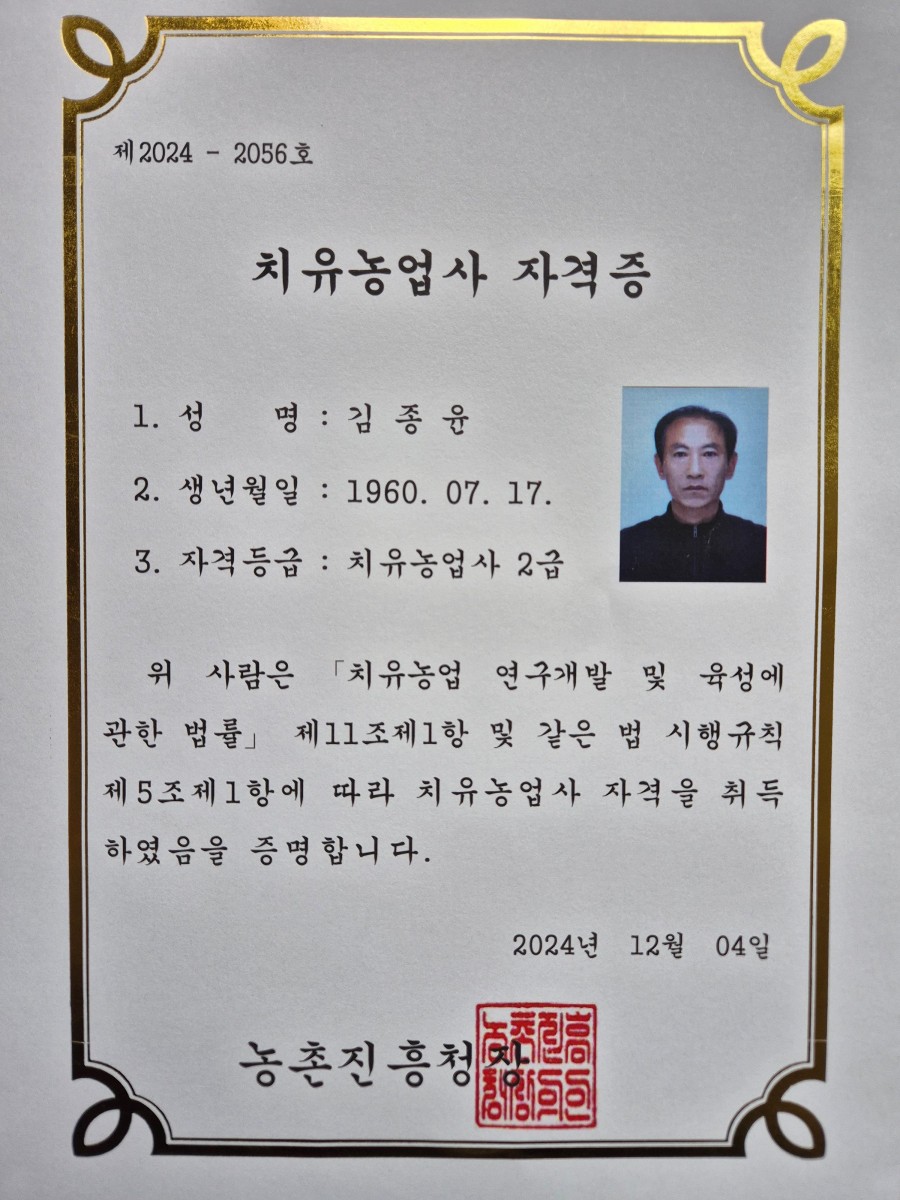 제2024 - 2056호
치유농업사 자격증
1. 성 명 : 김 종 윤
2. 생년월일 : 1960. 07. 17.
3. 자격등급 : 치유농업사 2급
위 사람은 「치유농업 연구개발 및 육성에
관한 법률」 제11조제1항 및 같은 법 시행규칙
제5조제1항에 따라 치유농업사 자격을 취득
하였음을 증명합니다.
2024년 12월 04일
농촌진흥청장